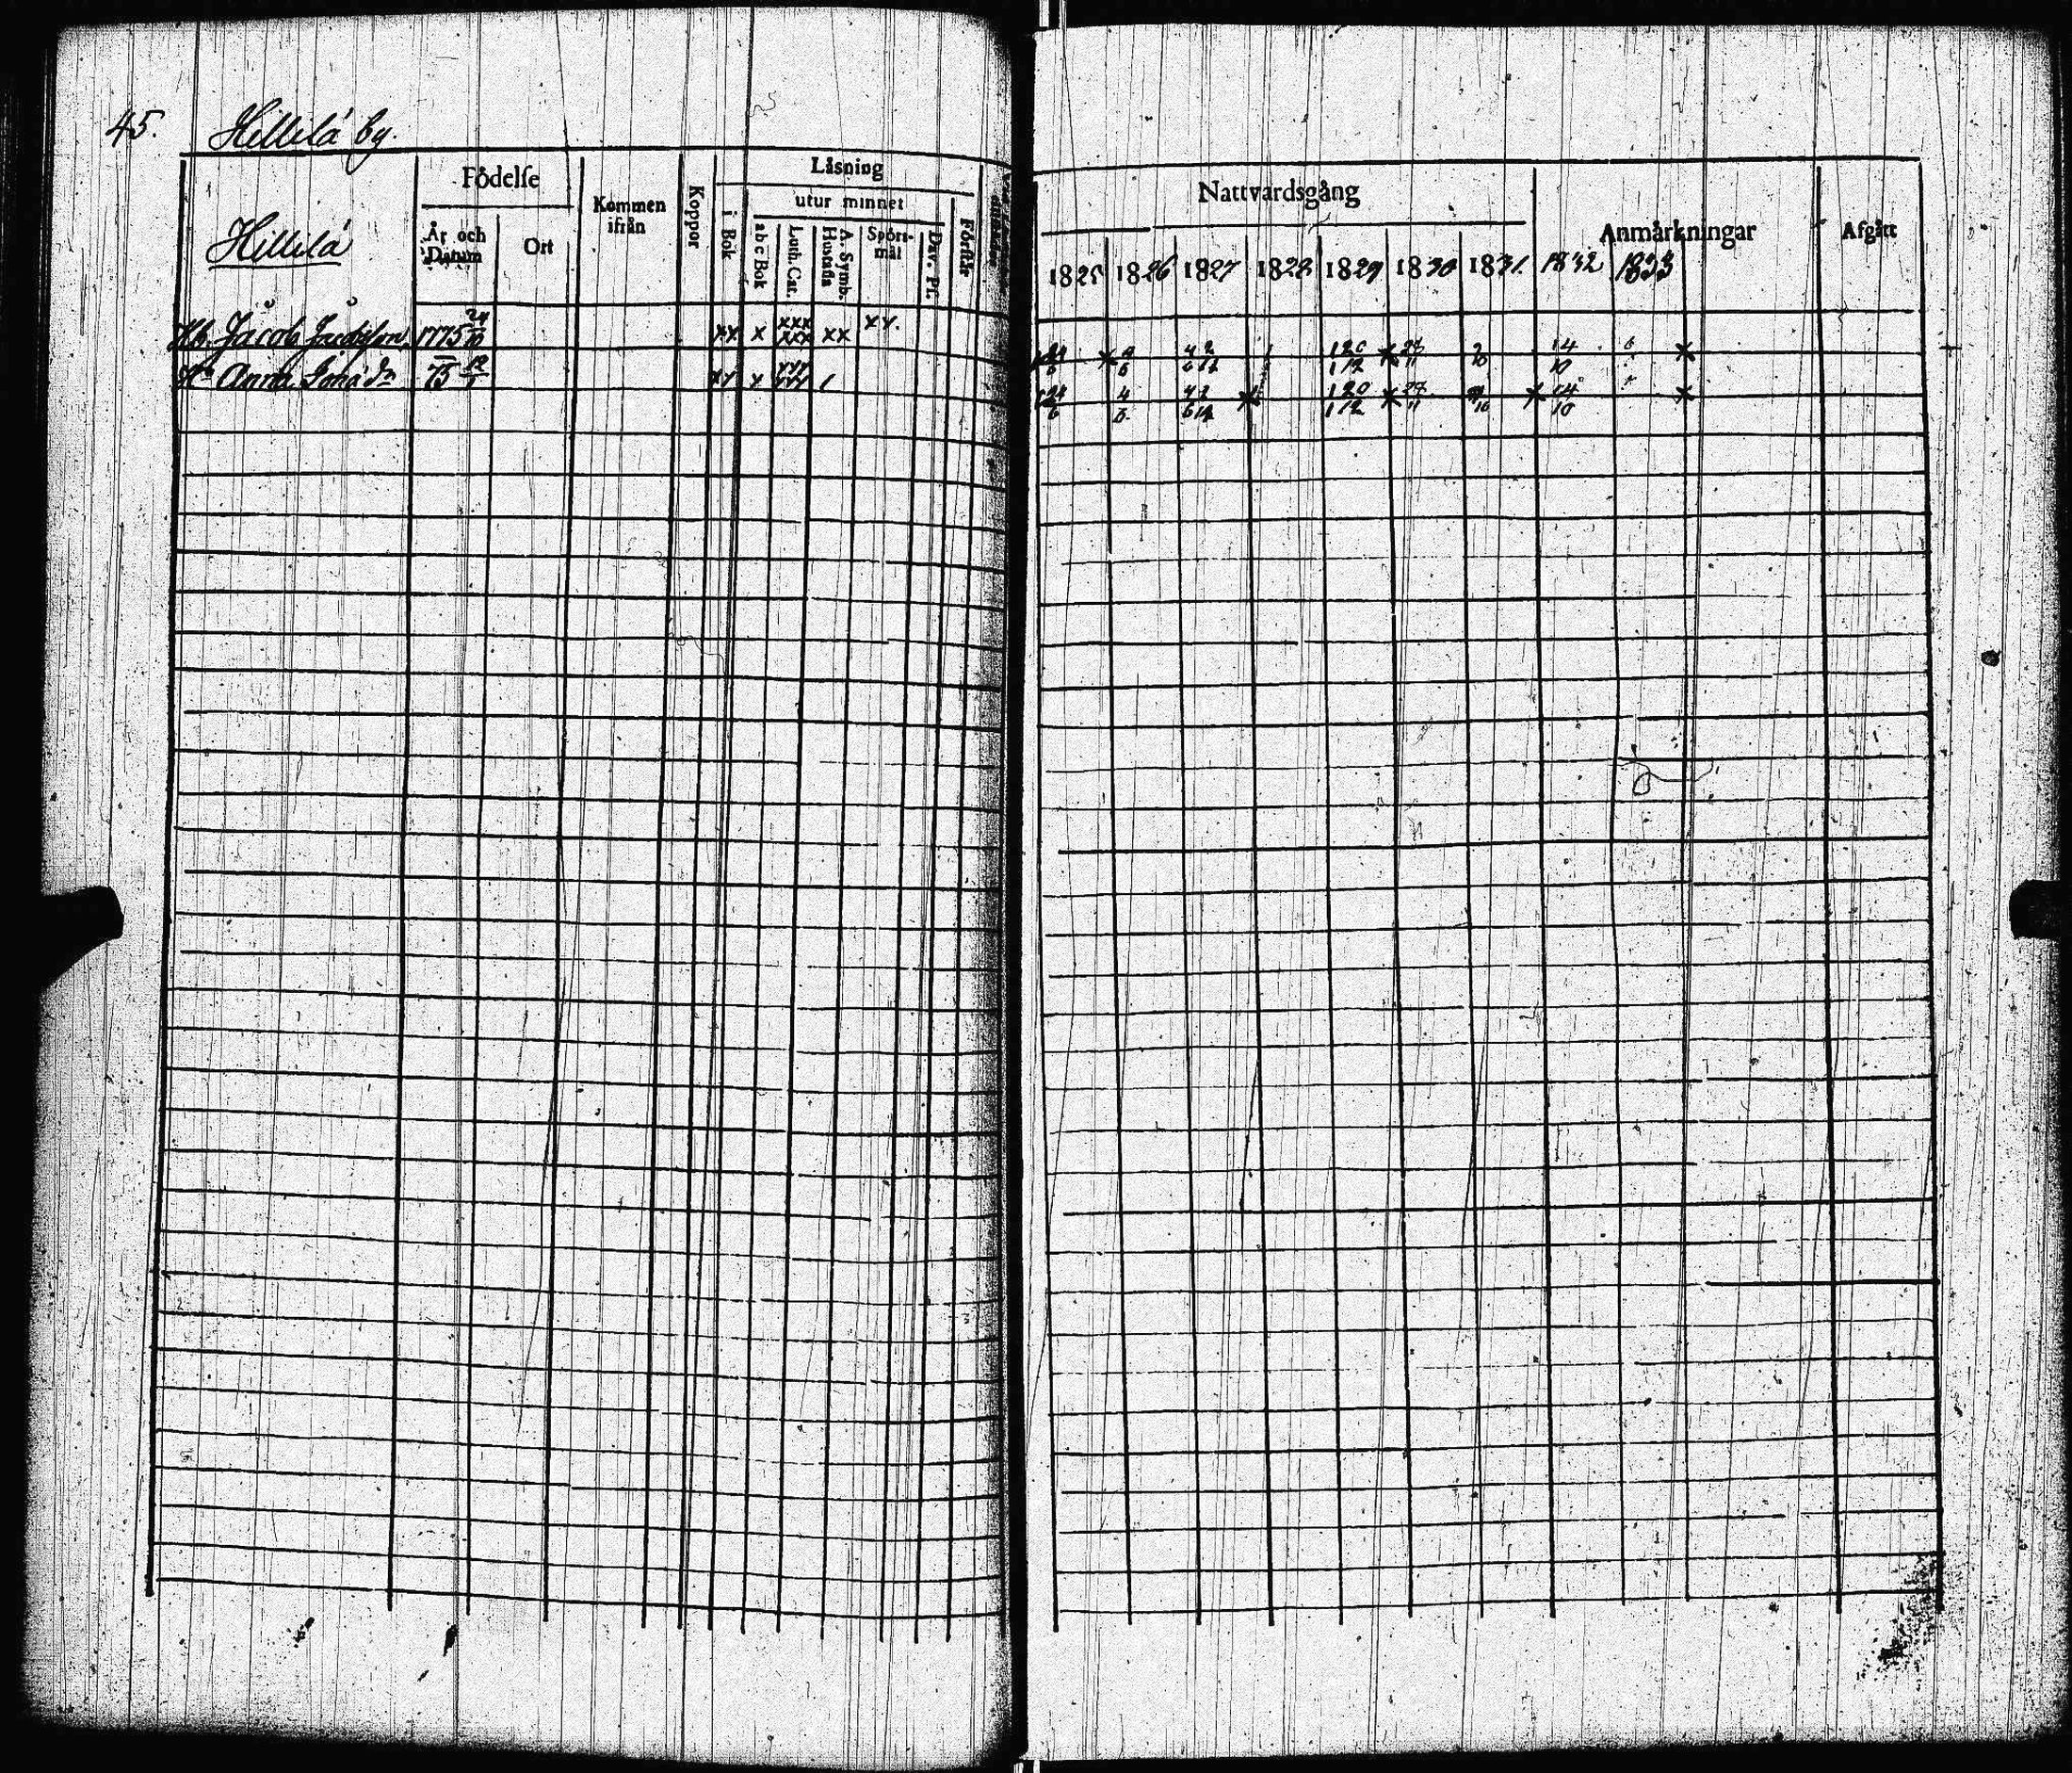 45. Hillilä by.
Hillilä
Födelse
År och Datum
Ort
Kommen ifrån
Koppor
Låsning
i Bok
utur minnet
a b c Bok
Luth. Cat.
A. Symb. Hustafla
Spörs-mål
Dav. Pf.
Förstår
Nattvardsgång
1825 1826 1827 1828 1829 1830 1831 1832 1833
Anmårkningar
Afgått
Hb. Jacob Jacobsson 1775 24/10 xx x xxx xxx xx xx.
24/6 4/6 4 2 / 6 12 1 20 / 1 12 14/10
Hu Anna 75 12/1 xx x xxx xxx /
24/6 4/6 1 20 / 1 12 14/10